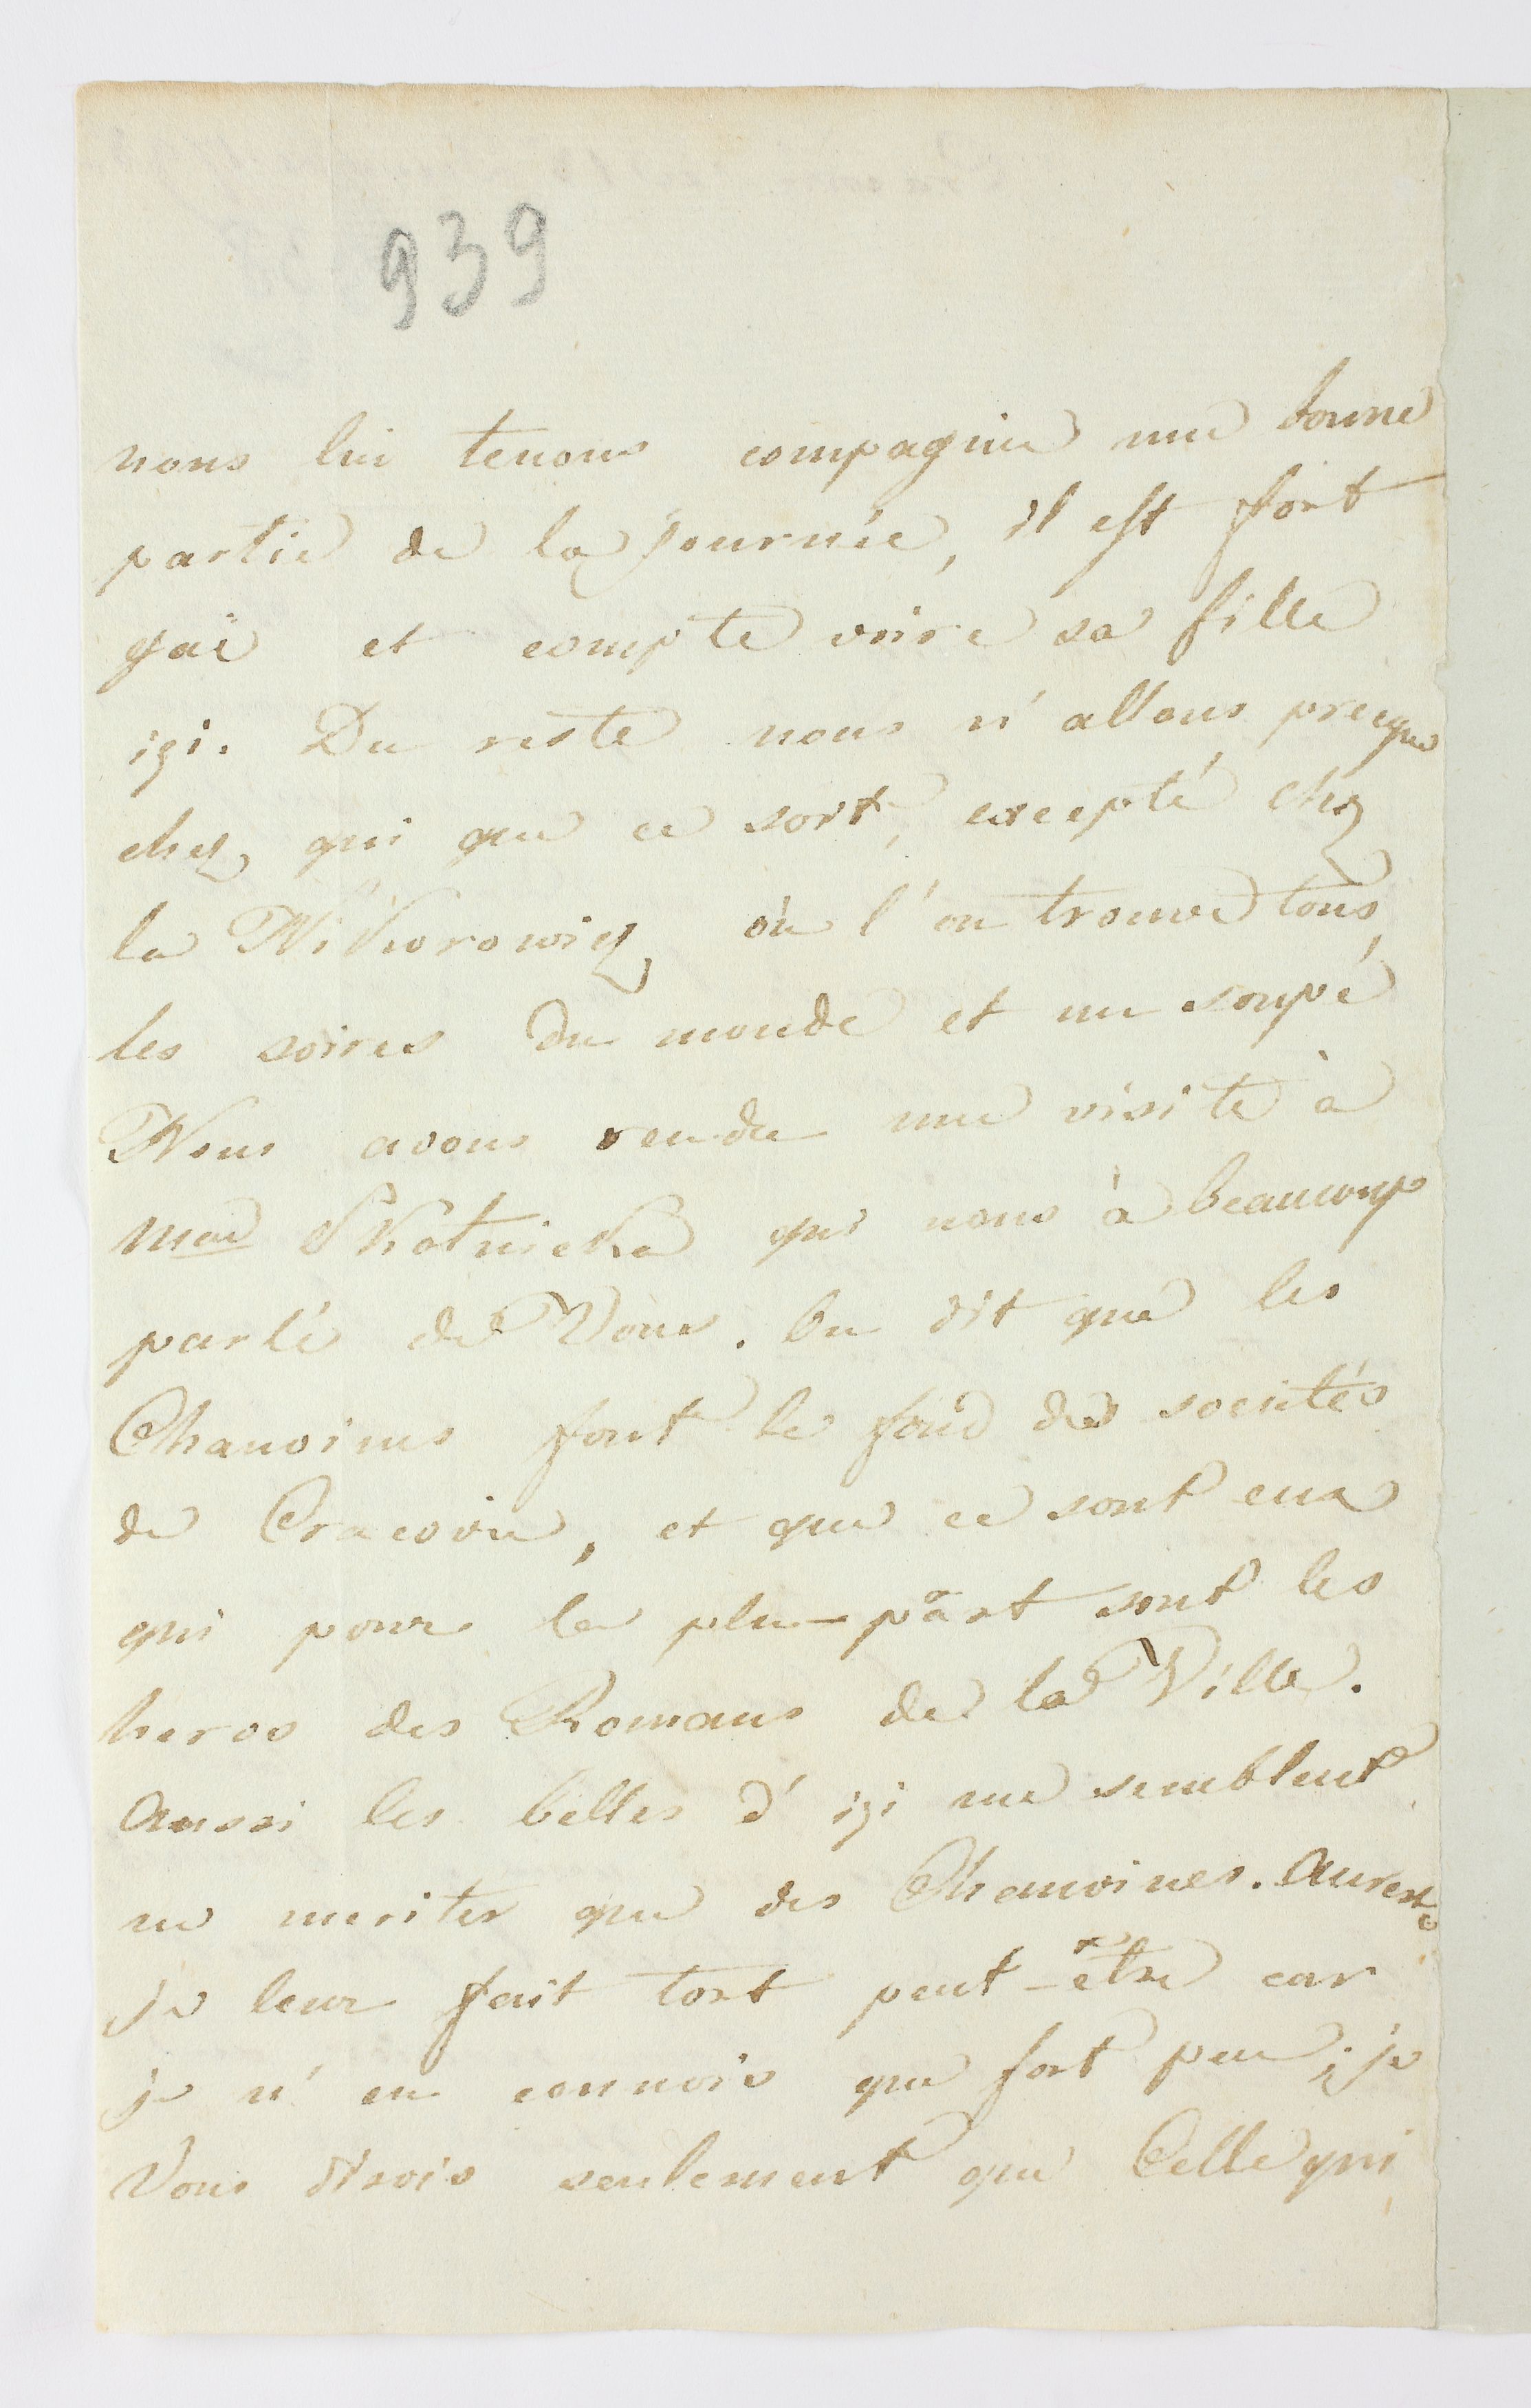 939
nous lui tenons compagnie une bonne
partie de la journée, il est fort
gai et compte voire sa fille
içi. Du reste nous n'allons presque
chez qui que ce soit, excepté chez
la Nikorowicz où l'on trouve tous
les soires du monde et un soupé
Nous avons rendu une visite à
mad Skotnicka qui nous à beaucoup
parlé de Vous. On dit que les
Chanoines font le fond des societés
de Cracovie, et que ce sont eux
qui pour la plu-pârt sont les
heros des Romans de la Ville.
Aussi les belles d'içi me semblent
ne meriter que des Chanoines. Aureste
je leur fait tort peut-être car
je n'en connois que fort peu; je
Vous dirois seulement que Celle qui